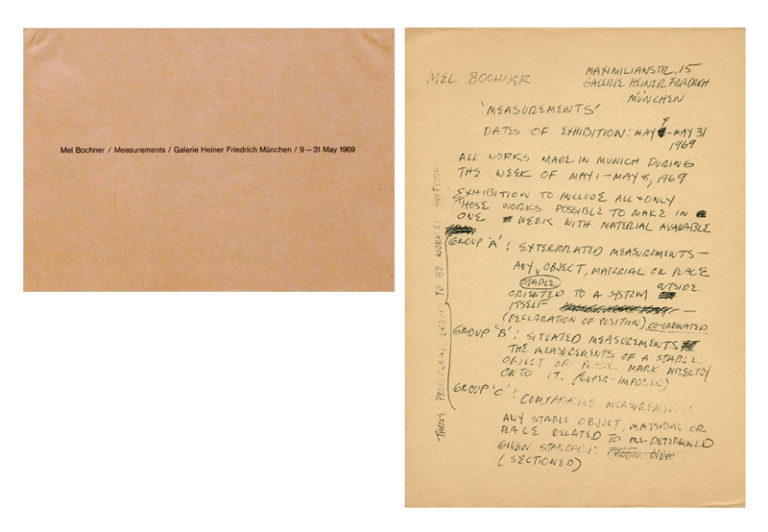 Mel Bochner / Measurements / Galerie Heiner Friedrich München / 9 – 31 May 1969
MEL BOCHNER
MAXIMILIANSTR. 15
GALERIE HEINER FRIEDRICH
MÜNCHEN
'MEASUREMENTS'
DATES OF EXHIBITION: MAY 9 - MAY 31
1969
ALL WORKS MADE IN MUNICH DURING
THE WEEK OF MAY 1 – MAY 8, 1969
EXHIBITION TO INCLUDE ALL + ONLY
THOSE WORKS POSSIBLE TO MAKE IN
ONE WEEK WITH MATERIAL AVAILABLE
GROUP 'A': EXTERIORATED MEASUREMENTS –
ANY STABLE OBJECT, MATERIAL OR PLACE
ORIENTED TO A SYSTEM OUTSIDE
ITSELF –
(DECLARATION OF POSITION) CO-ORDINATED
GROUP 'B': SITUATED MEASUREMENTS
THE MEASUREMENTS OF A STABLE
OBJECT OR PLACE MARK DIRECTLY
ONTO IT. (SUPER-IMPOSED)
GROUP 'C': COMPARATIVE MEASUREMENTS
ANY STABLE OBJECT, MATERIAL OR
PLACE RELATED TO PRE-DETERMINED
GIVEN STANDARD
(SECTIONED)
THREE PROCEDURAL GROUPS TO BE WORKED